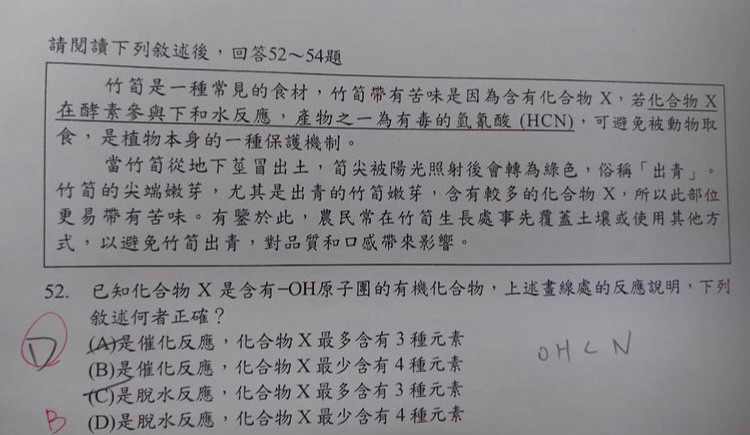 請閱讀下列敘述後，回答52～54題
竹筍是一種常見的食材，竹筍帶有苦味是因為含有化合物 X，若化合物 X
在酵素參與下和水反應，產物之一為有毒的氫氰酸 (HCN)，可避免被動物取
食，是植物本身的一種保護機制。
當竹筍從地下莖冒出土，筍尖被陽光照射後會轉為綠色，俗稱「出青」。
竹筍的尖端嫩芽，尤其是出青的竹筍嫩芽，含有較多的化合物 X，所以此部位
更易帶有苦味。有鑒於此，農民常在竹筍生長處事先覆蓋土壤或使用其他方
式，以避免竹筍出青，對品質和口感帶來影響。
52. 已知化合物 X 是含有–OH原子團的有機化合物，上述畫線處的反應說明，下列
敘述何者正確？
(A)是催化反應，化合物 X 最多含有 3 種元素
D
(B)是催化反應，化合物 X 最少含有 4 種元素
OHCN
(C)是脫水反應，化合物 X 最多含有 3 種元素
B
(D)是脫水反應，化合物 X 最少含有 4 種元素